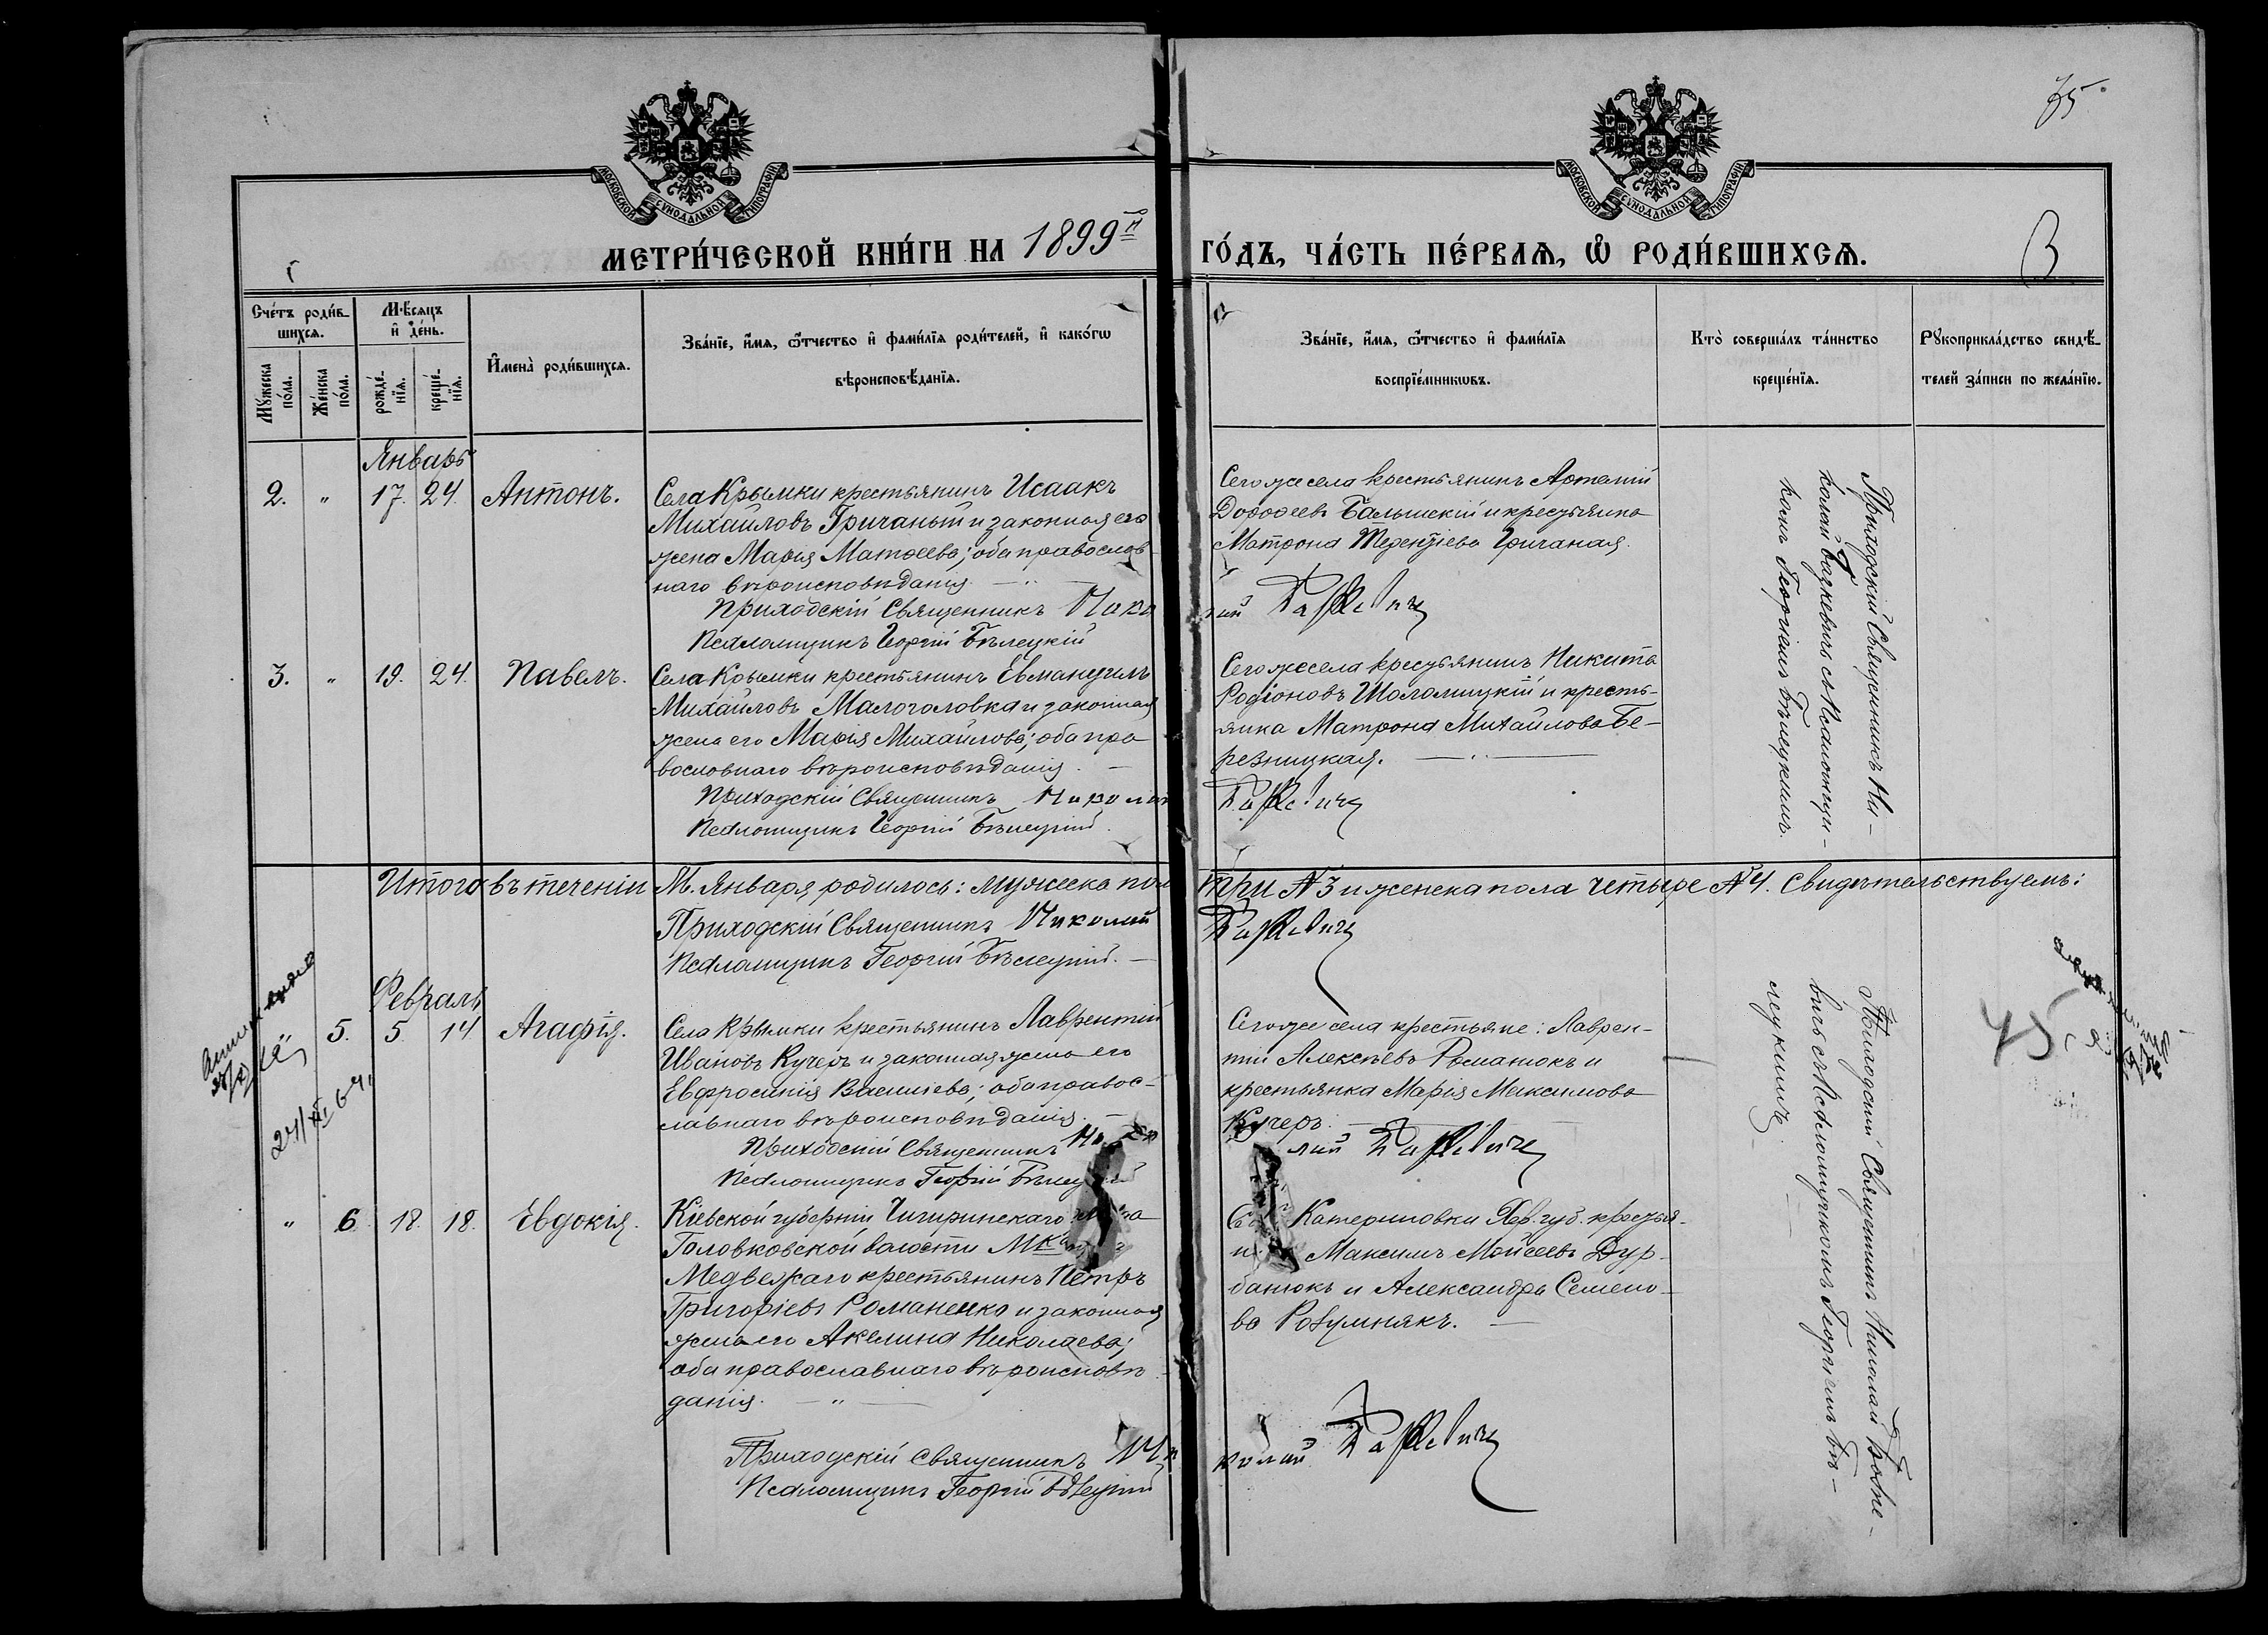 35
МОСКОВСКОЙ СѴНОДАЛЬНОЙ ТИПОГРАФІИ
МОСКОВСКОЙ СѴНОДАЛЬНОЙ ТИПОГРАФІИ
МЕТРИ́ЧЕСКОЙ КНИ́ГИ НА 1899й ГО́ДЪ, ЧА́СТЬ ПЕ́РВАѦ, Ѡ҆ РОДИ́ВШИХСѦ.
3
Сче́тъ роди́в-
шихсѧ.
Мꙋ́жеска по́ла.
Же́нска по́ла.
Мѣ́сѧцъ
и҆ де́нь.
рожде́-
нїѧ.
креще́-
нїѧ.
И҆мена̀ роди́вшихсѧ.
Зва́нїе, и҆́мѧ, ѻ҆́тчество и҆ фами́лїѧ роди́телей, и҆ како́гѡ
вѣроисповѣ́данїѧ.
Зва́нїе, и҆́мѧ, ѻ҆́тчество и҆ фами́лїѧ
воспрїе́мникѡвъ.
Кто̀ соверша́лъ та́инство
креще́нїѧ.
Рꙋкоприкла́дство свидѣ́-
телей за́писи по жела́нїю.
Январь
2. " 17. 24. Антонъ.
Села Крымки крестьянинъ Исаакъ
Михайловъ Гричаный и законная его
жена Марія Матѳеева; оба православ-
наго вѣроисповѣданія.
Приходскій Священникъ Николай Бацкевичъ
Псаломщикъ Георгій Бѣлецкій
Сего же села крестьянинъ Артемій
Дороѳеевъ и крестьянка
Матрона Терентіева Гричаная.
Приходскій Священникъ Ни-
колай Бацкевичъ съ Псаломщи-
комъ Георгіемъ Бѣлецкимъ.
3. " 19. 24. Павелъ.
Села Крымки крестьянинъ Евмануилъ
Михайловъ Малоголовка и законная
жена его Марія Михайлова; оба пра-
вославнаго вѣроисповѣданія.
Приходскій Священникъ Николай Бацкевичъ
Псаломщикъ Георгій Бѣлецкій.
Сего же села крестьянинъ Никита
Родіоновъ Шоломицкій и кресть-
янка Матрона Михайлова Бе-
резницкая.
Итого въ теченіи М. Января родилось: мужеска пол три №3 и женска пола четыре №4. Свидѣтельствуемъ:
Приходскій Священникъ Николай Бацкевичъ
Псаломщикъ Георгій Бѣлецкій.
Февраль
5. 5. 14 Агафія.
24/XI 64
Села Крымки крестьянинъ Лаврентій
Ивановъ Кучеръ и законная жена его
Евфросинія Васильева; оба правос-
лавнаго вѣроисповѣданія.
Приходскій Священникъ Николай Бацкевичъ
Псаломщикъ Георгій Бѣлецкій
Сего же села крестьяне: Лаврен-
тій Алексѣевъ Романюкъ и
крестьянка Марія Максимова
Кучеръ.
Приходскій Священникъ Николай Бацке-
вичъ съ Псаломщикомъ Георгіемъ Бѣ-
лецкимъ.
45
" 6. 18. 18. Евдокія.
Кіевской губерніи Чигиринскаго
Головковской волости
Медвежаго крестьянинъ Петръ
Григоріевъ Романенко и законная
жена его Акилина Николаева;
оба православнаго вѣроисповѣ-
данія.
Приходскій Священникъ Николай Бацкевичъ
Псаломщикъ Георгій Бѣлецкій
Катериновки Хер. губ. крестья-
Максимъ Мойсеевъ Дур-
банюкъ и Александра Семено-
ва Розумнякъ.